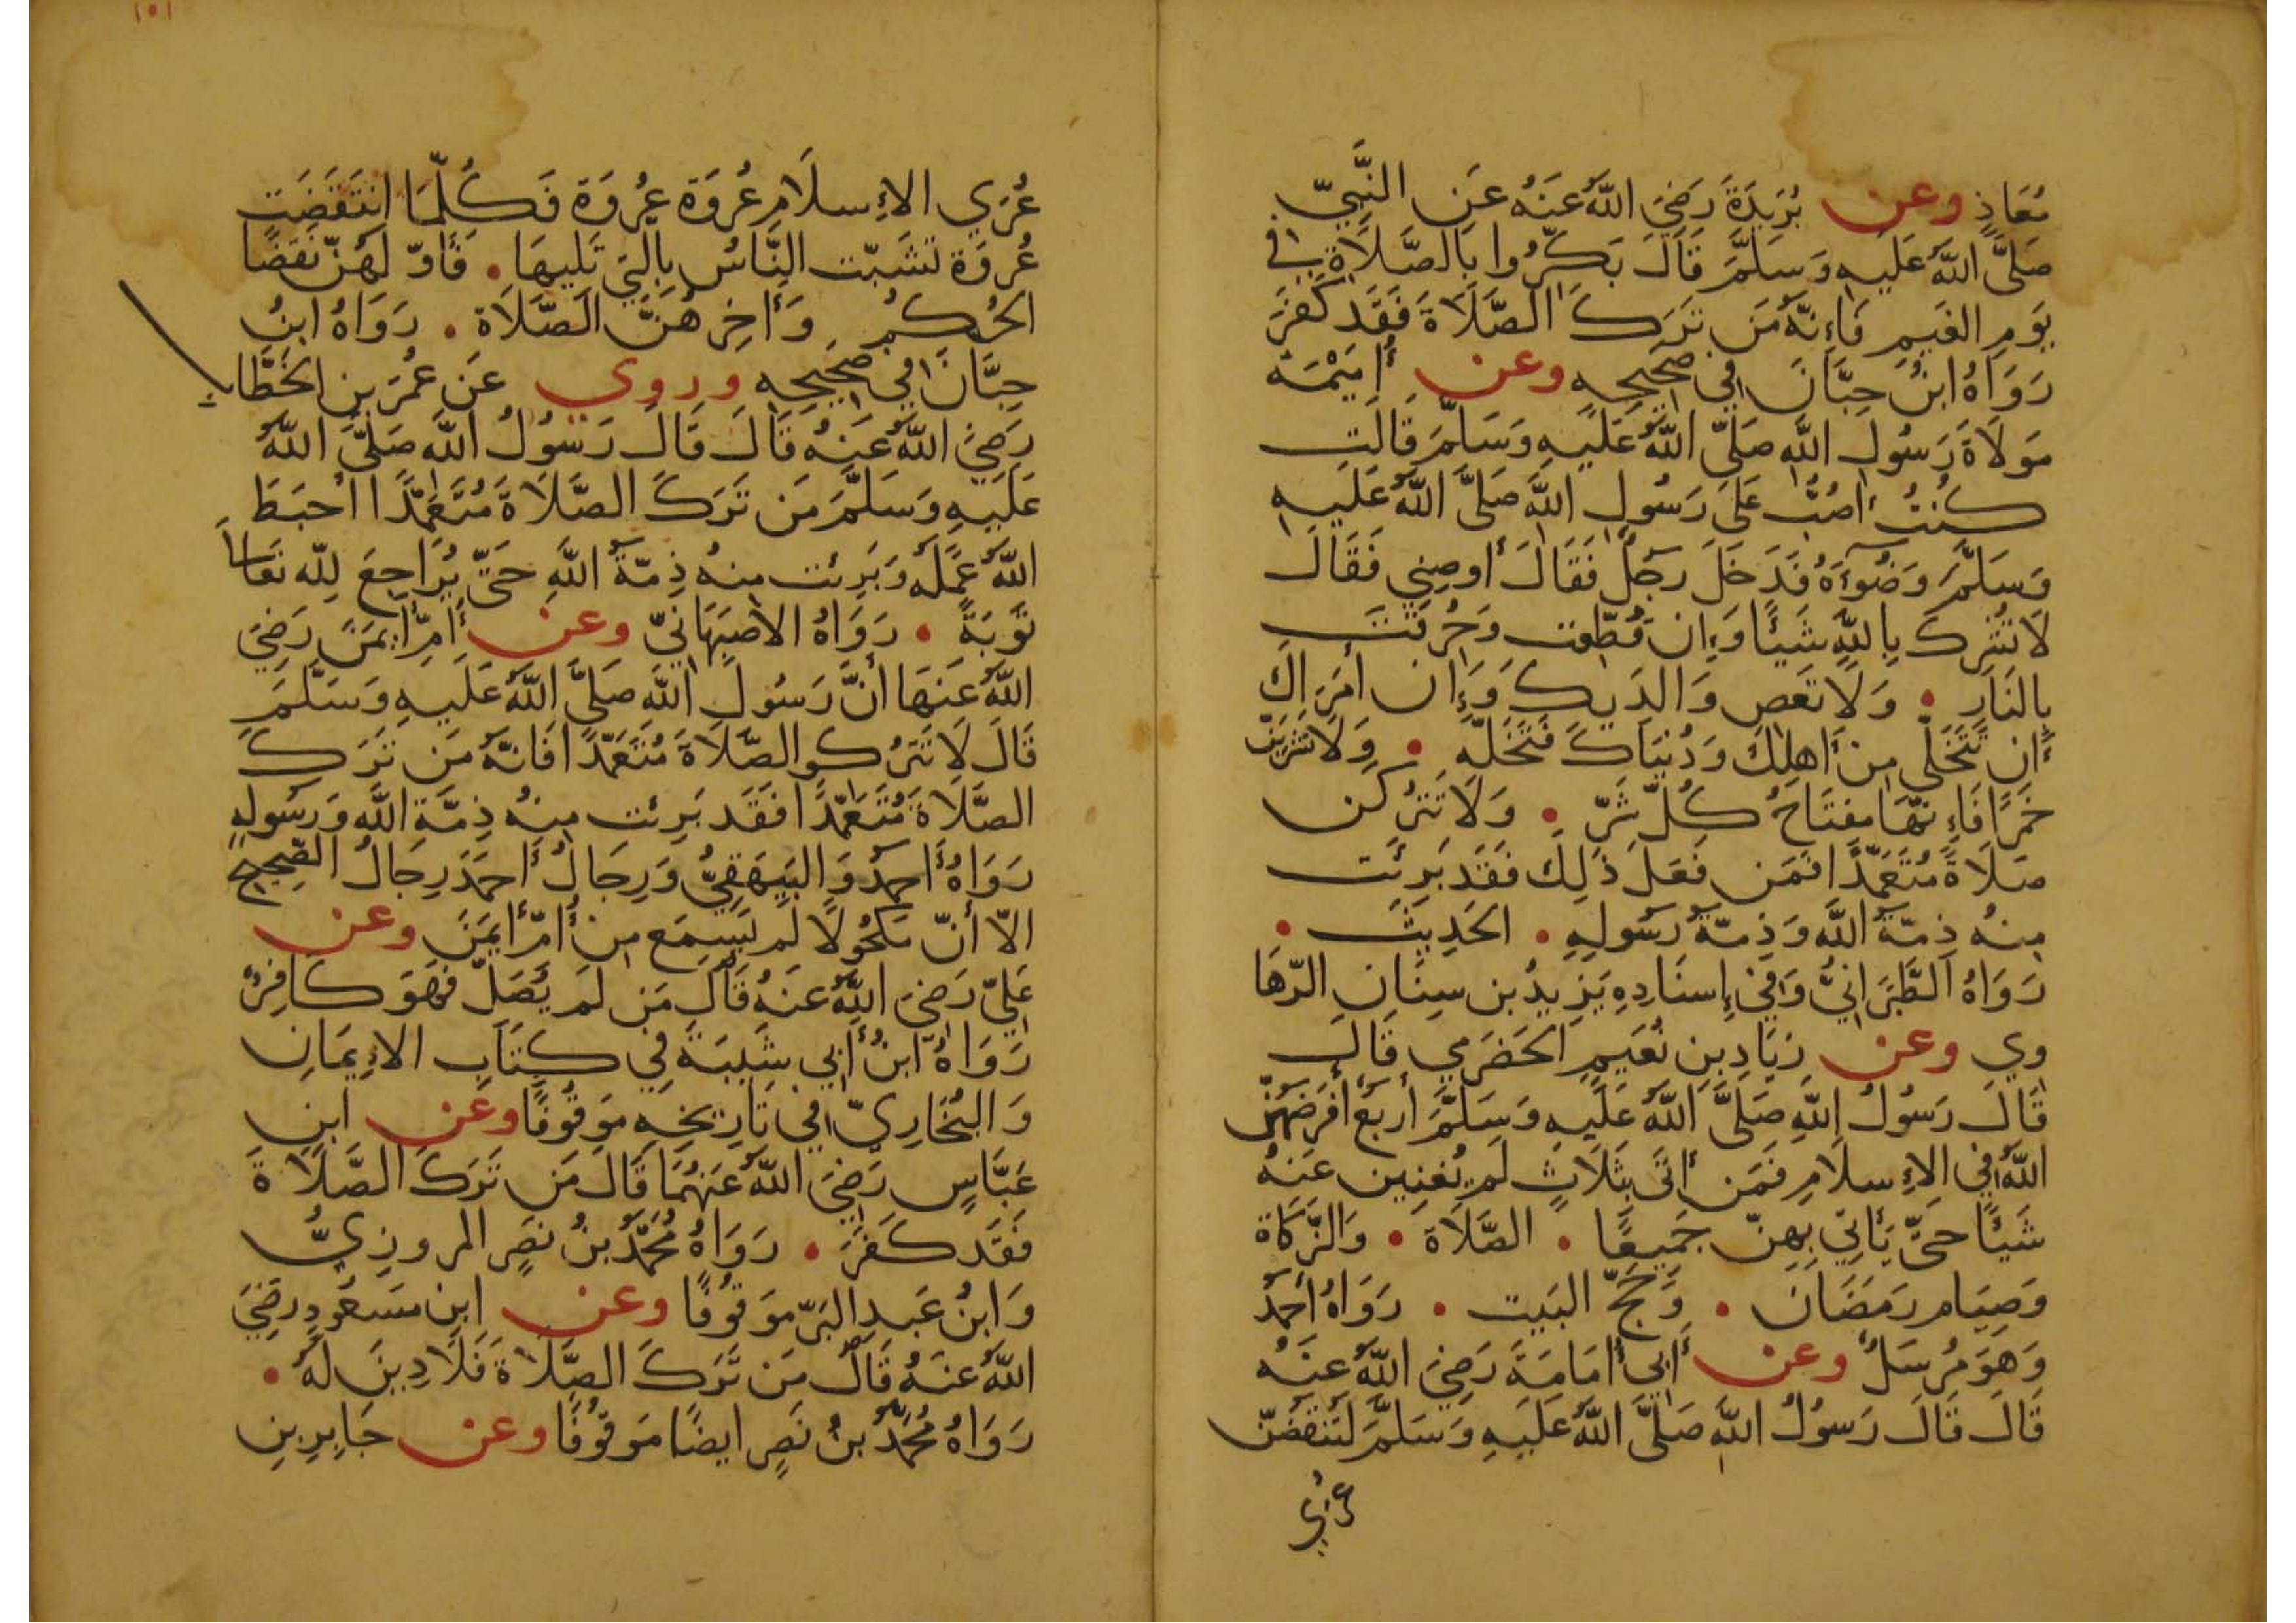 مُعَاذٍ وعن بُرَيدَةَ رَضِيَ اللَّهُ عَنهُ عَنِ النَّبِيّ
صَلَّى اللَّهُ عَلَيهِ وَسَلَّمَ قَالَ بَكِّرُوا بِالصَّلَاةِ فِي
يَومِ الغَيمِ فَإِنَّهُ مَن تَرَكَ الصَّلَاةَ فَقَد كَفَرَ
رَوَاهُ ابنُ حِبَّانَ فِي صَحِيحِهِ وعن أُمَيْمَةَ
مَولَاةَ رَسُولِ اللَّهِ صَلَّى اللَّهُ عَلَيهِ وَسَلَّمَ قَالَت
كُنتُ أَصُبُّ عَلَى رَسُولِ اللَّهِ صَلَّى اللَّهُ عَلَيهِ
وَسَلَّمَ وَضُوءَهُ فَدَخَلَ رَجُلٌ فَقَالَ أَوصِنِي فَقَالَ
لَا تُشرِك بِاللَّهِ شَيئًا وَإِن قُطِّعتَ وَحُرِّقتَ
بِالنَّارِ • وَلَا تَعصِ وَالِدَيكَ وَإِن أَمَرَاكَ
أَن تَتَخَلَّى مِن أَهلِكَ وَدُنيَاكَ فَتَخَلَّه • وَلَا تَشرَبَنّ
خَمرًا فَإِنَّهَا مِفتَاحُ كُلِّ شَرّ • وَلَا تَترُكَن
صَلَاةً مُتَعَمِّدًا فَمَن فَعَلَ ذَلِكَ فَقَد بَرِئَت
مِنهُ ذِمَّةُ اللَّهِ وَذِمَّةُ رَسُولِهِ • الحَدِيثَ •
رَوَاهُ الطَّبَرَانِيُّ وَفِي إِسنَادِهِ يَزِيدُ بن سِنَانِ الرّهَا
وِي وعن زِيَادِ بنِ نُعَيمٍ الحَضرَمِي قَالَ
قَالَ رَسُولُ اللَّهِ صَلَّى اللَّهُ عَلَيهِ وَسَلَّمَ أَربَع أَفرَضَهُنّ
اللَّهُ فِي الإِسلَامِ فَمَن أَتَى بِثَلَاثٍ لَم يُغنِين عَنهُ
شَيئًا حَتَّى يَأتِيَ بِهِنّ جَمِيعًا • الصَّلَاة • وَالزَّكَاة
وَصِيَام رَمَضَان • وَحَجّ البَيت • رَوَاهُ أَحمَدُ
وَهوَ مُرسَلٌ وعن أَبِي أُمَامَةَ رَضِيَ اللَّهُ عَنهُ
قَالَ قَالَ رَسُولُ اللَّهِ صَلَّى اللَّهُ عَلَيهِ وَسَلَّمَ لَتُنقَضَنّ
عُرَي
١٥١
عُرَي الإِسلَامِ عُروَة عُروَة فَكُلَّمَا انتَقَضَت
عُروَة تَشَبّت النَّاسُ بِالَّتِي تَلِيهَا • فَأَوّلهُنّ نَقضًا
الحُكمُ وَأَخِرهُنَّ الصَّلَاة • رَوَاهُ ابنُ
حِبَّانَ فِي صَحِيحِهِ وروي عَن عُمَرَ بنِ الخَطَّاب
رَضِيَ اللَّهُ عَنهُ قَالَ قَالَ رَسُولُ اللَّهِ صَلَّى اللَّهُ
عَلَيهِ وَسَلَّمَ مَن تَرَكَ الصَّلَاةَ مُتَعَمِّدًا أَحبَطَ
اللَّهُ عَمَلَه وَبَرِئت مِنهُ ذِمَّةُ اللَّهِ حَتَّى يُرَاجِعَ لِلَّه تَعَالَى
تَوبَةً • رَوَاهُ الأَصبَهَانِيّ وعن أُمِّ أَيمَنَ رَضِيَ
اللَّهُ عَنهَا أَنَّ رَسُولَ اللَّهِ صَلَّى اللَّهُ عَلَيهِ وَسَلَّمَ
قَالَ لَا تَترُكوا الصَّلَاةَ مُتَعَمِّدًا فَإنَّهُ مَن تَرَكَ
الصَّلَاةَ مُتَعَمِّدًا فَقَد بَرِئت مِنهُ ذِمَّةُ اللَّهِ وَرَسُولِهِ
رَوَاهُ أَحمَدُ وَالبَيهَقِيُّ وَرِجَالُ أَحمَدَ رِجَالُ الصَّحِيحِ
الّا أَنّ مَكحُولًا لَم يَسمَع مِن أُمّ أَيمَنَ وعن
عَلِيّ رَضِيَ اللَّهُ عَنهُ قَالَ مَن لَم يُصَلّ فَهوَ كَافِرٌ
رَوَاهُ ابنُ أَبِي شَيبَةَ فِي كِتَابِ الإِيمَانِ
وَالبُخَارِيّ فِي تَارِيخِهِ مَوقُوفًا وعن ابنِ
عَبَّاسٍ رَضِيَ اللَّهُ عَنهُمَا قَالَ مَن تَرَكَ الصَّلَاةَ
فَقَد كَفَرَ • رَوَاهُ مُحَمَّدُ بنُ نَصرٍ المروزِيُّ
وَابنُ عَبدِ البَرّ مَوقُوفًا وعن ابنِ مَسعُودٍ رَضِيَ
اللَّهُ عَنهُ قَالَ مَن تَرَكَ الصَّلَاةَ فَلَا دِينَ لَهُ •
رَوَاهُ مُحَمَّدُ بنُ نَصرٍ ايضًا مَوقُوفًا وعن جَابِرِ بنِ